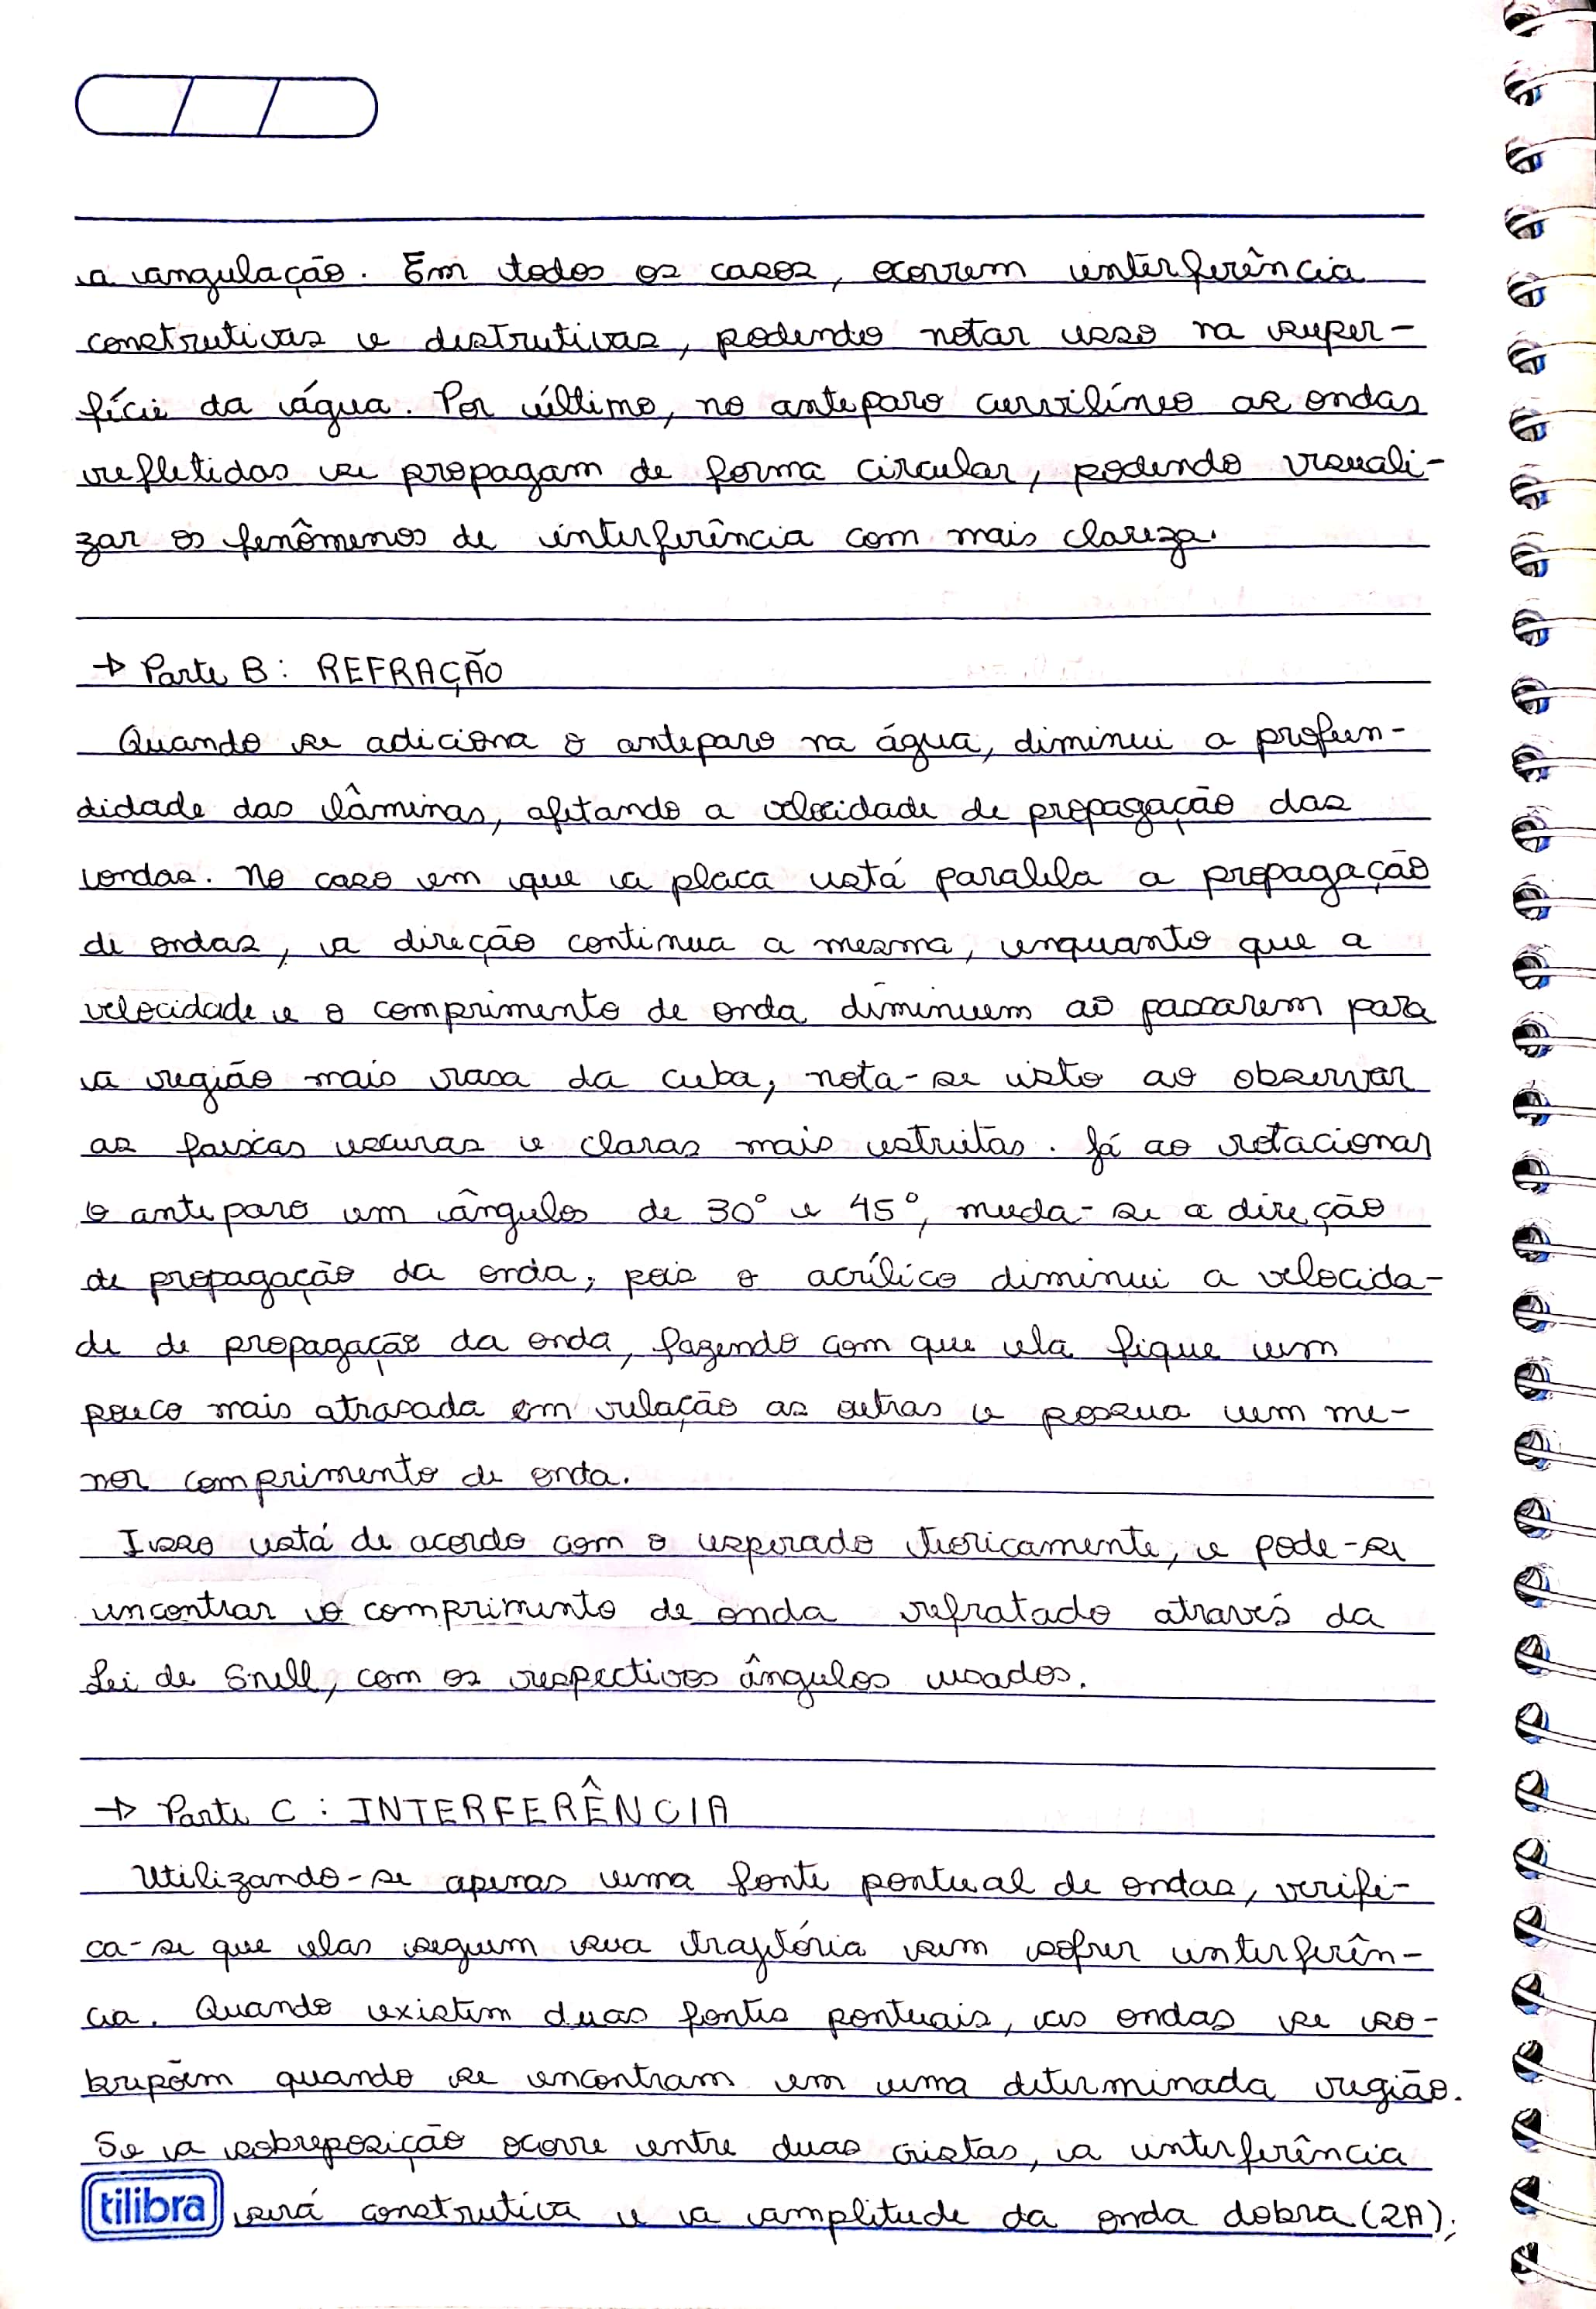 a angulação. Em todos os casos, ocorrem interferência
construtivas e destrutivas, podendo notar isso na super-
fície da água. Por último, no anteparo curvilíneo as ondas
refletidas se propagam de forma circular, podendo visuali-
zar os fenômenos de interferência com mais clareza.
→ Parte B: REFRAÇÃO
Quando se adiciona o anteparo na água, diminui a profun-
didade das lâminas, afetando a velocidade de propagação das
ondas. No caso em que a placa está paralela a propagação
de ondas, a direção continua a mesma, enquanto que a
velocidade e o comprimento de onda diminuem ao passarem para
a região mais rasa da cuba, nota-se isto ao observar
as faixas escuras e claras mais estreitas. Já ao rotacionar
o anteparo em ângulos de 30° e 45°, muda-se a direção
de propagação da onda, pois o acrílico diminui a velocida-
de de propagação da onda, fazendo com que ela fique um
pouco mais atrasada em relação as outras e possua um me-
nor comprimento de onda.
Isso está de acordo com o esperado teoricamente, e pode-se
encontrar o comprimento de onda refratado através da
Lei de Snell, com os respectivos ângulos usados.
→ Parte C: INTERFERÊNCIA
Utilizando-se apenas uma fonte pontual de ondas, verifi-
ca-se que elas seguem sua trajetória sem sofrer interferên-
cia. Quando existem duas fontes pontuais, as ondas se so-
brepõem quando se encontram em uma determinada região.
Se a sobreposição ocorre entre duas cristas, a interferência
tilibra será construtiva e a amplitude da onda dobra (2A);